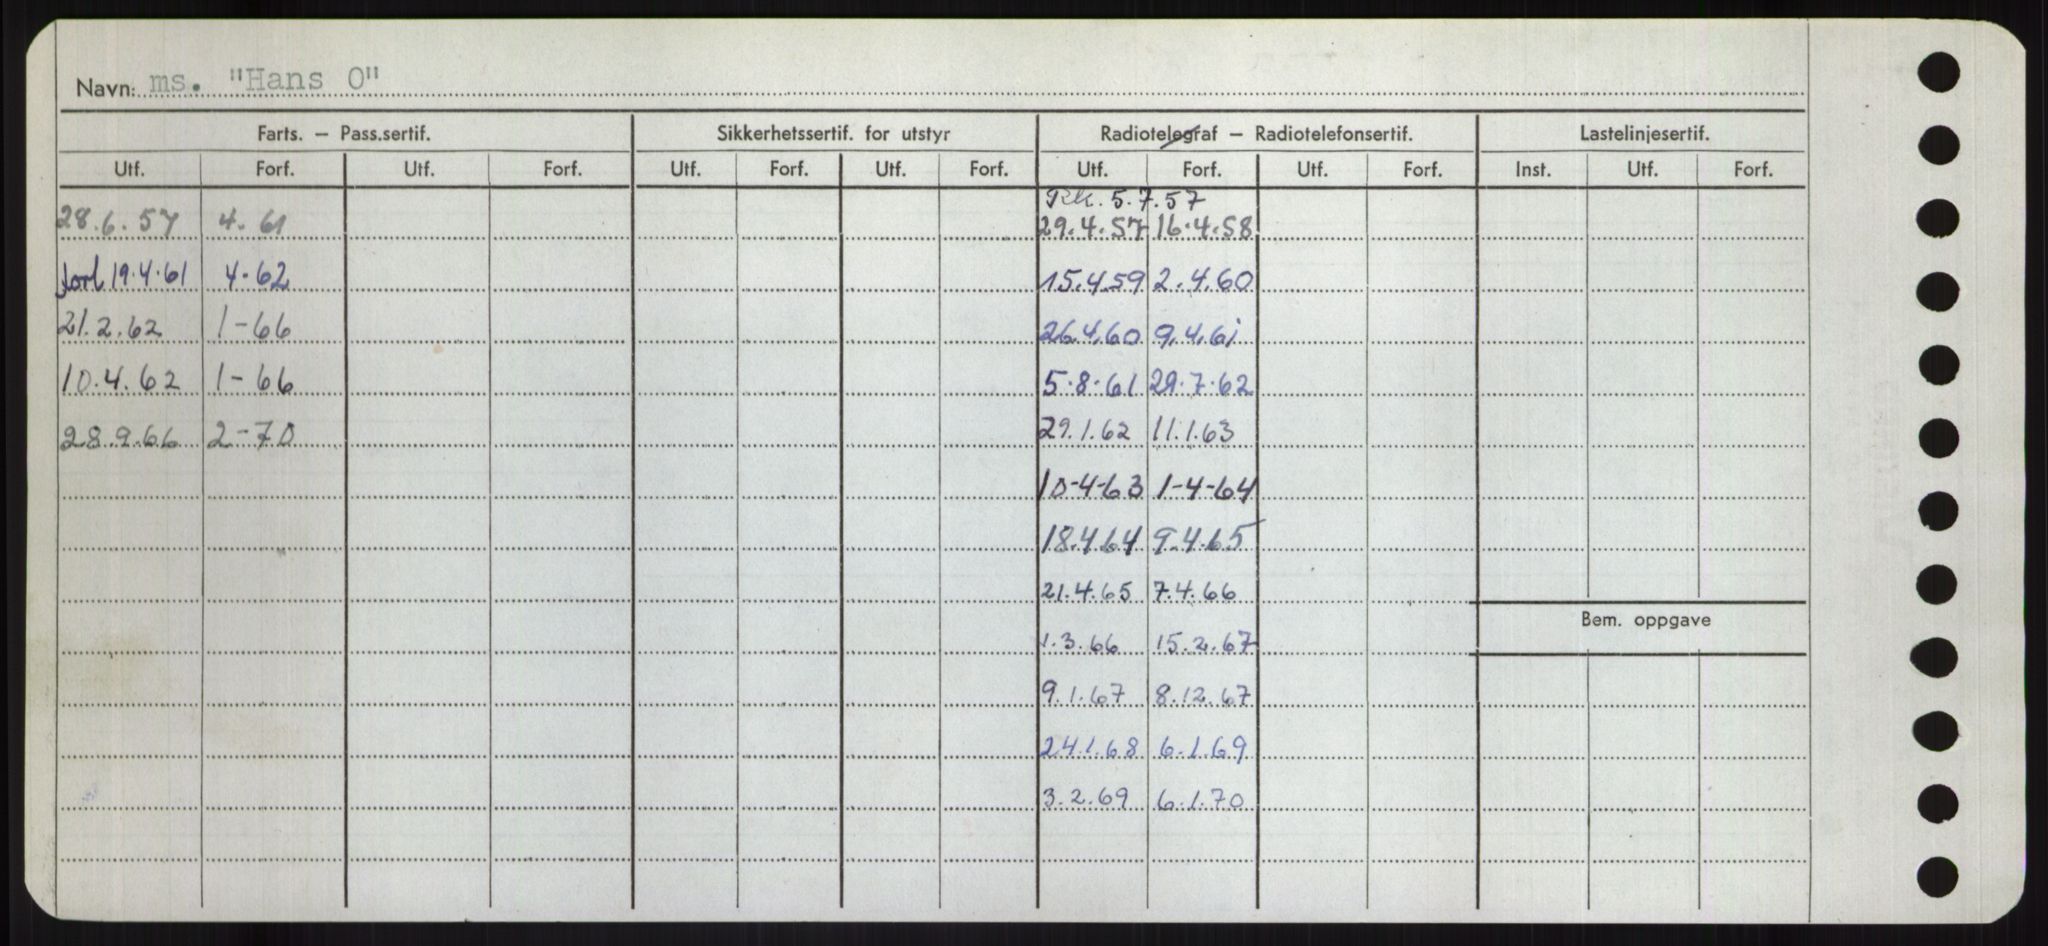 Navn: ms. "Hans O"
Farts. — Pass.sertif. Sikkerhetssertif. for utstyr Radiotelegraf — Radiotelefonsertif. Lastelinjesertif.
Utf. Forf. Utf. Forf. Utf. Forf. Utf. Forf. Utf. Forf. Utf. Forf. Inst. Utf. Forf.
5.7.57
28.6.57 4.61 29.4.57 16.4.58
forl 19.4.61 4.62 15.4.59 2.4.60
21.2.62 1-66 26.4.60 9.4.61
10.4.62 1-66 5.8.61 29.7.62
28.9.66 2-70 29.1.62 11.1.63
10-4-63 1-4-64
18.4.64 9.4.65
21.4.65 7.4.66
Bem. oppgave
1.3.66 15.2.67
9.1.67 8.12.67
24.1.68 6.1.69
3.2.69 6.1.70